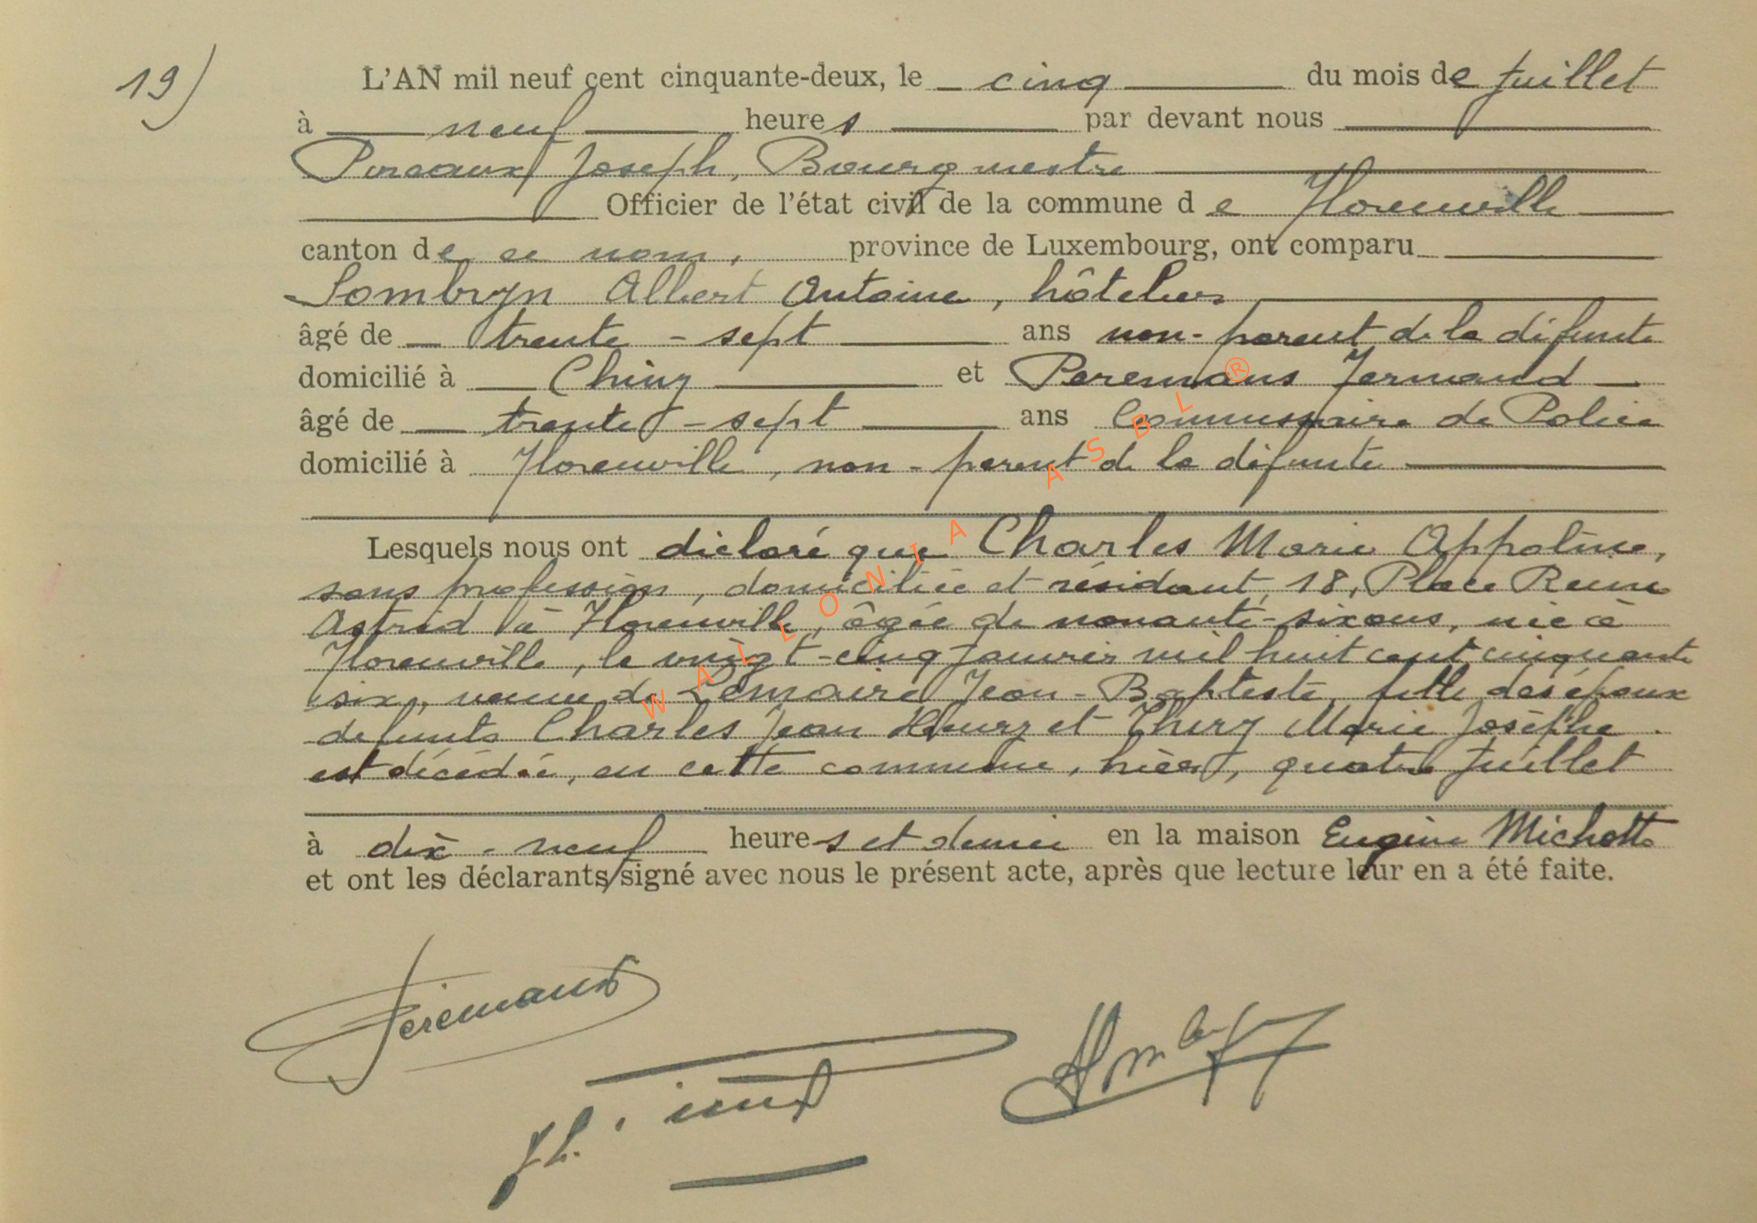 19)
L'AN mil neuf cent cinquante-deux, le cinq du mois de Juillet
à neuf heures par devant nous
Joseph, Bourgmestre
Officier de l'état civil de la commune de Florenville
canton de ce nom, province de Luxembourg, ont comparu
Sombryn Albert Antoine, hôtelier
âgé de trente-sept ans non-parent de la défunte
domicilié à Chiny et Peremans Fernand
âgé de trente-sept ans Commissaire de Police
domicilié à Florenville, non-parent de la défunte
Lesquels nous ont déclaré que Charles Marie Appoline,
sans profession, domiciliée et résidant, 18, Place Reine
Astrid à Florenville, âgée de nonante-six ans, née à
Florenville, le vingt-cinq Janvier mil huit cent cinquante
six, veuve de Lemaire Jean-Baptiste, fille des époux
défunts Charles Jean Henry et Thiry Marie Josèphe.
est décédée, en cette commune, hier, quatre Juillet
à dix-neuf heures et demie en la maison Eugène Michotte
et ont les déclarants signé avec nous le présent acte, après que lecture leur en a été faite.
Peremans
WALLONIA ASBL ®